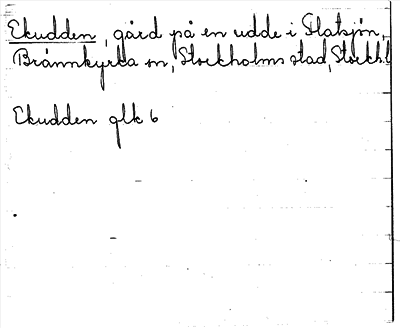 Ekudden, gård på en udde i Flatsjön,
Brännkyrka sn, Stockholms stad, Stockh.l
Ekudden glk 6